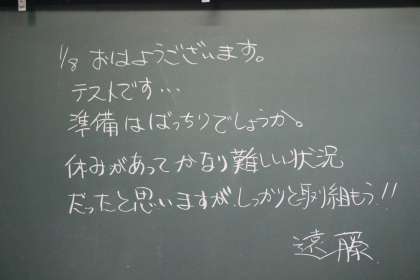 1/8 おはようございます。
テストです…
準備はばっちりでしょうか。
休みがあってかなり難しい状況
だったと思いますが、しっかりと取り組もう!!
遠藤